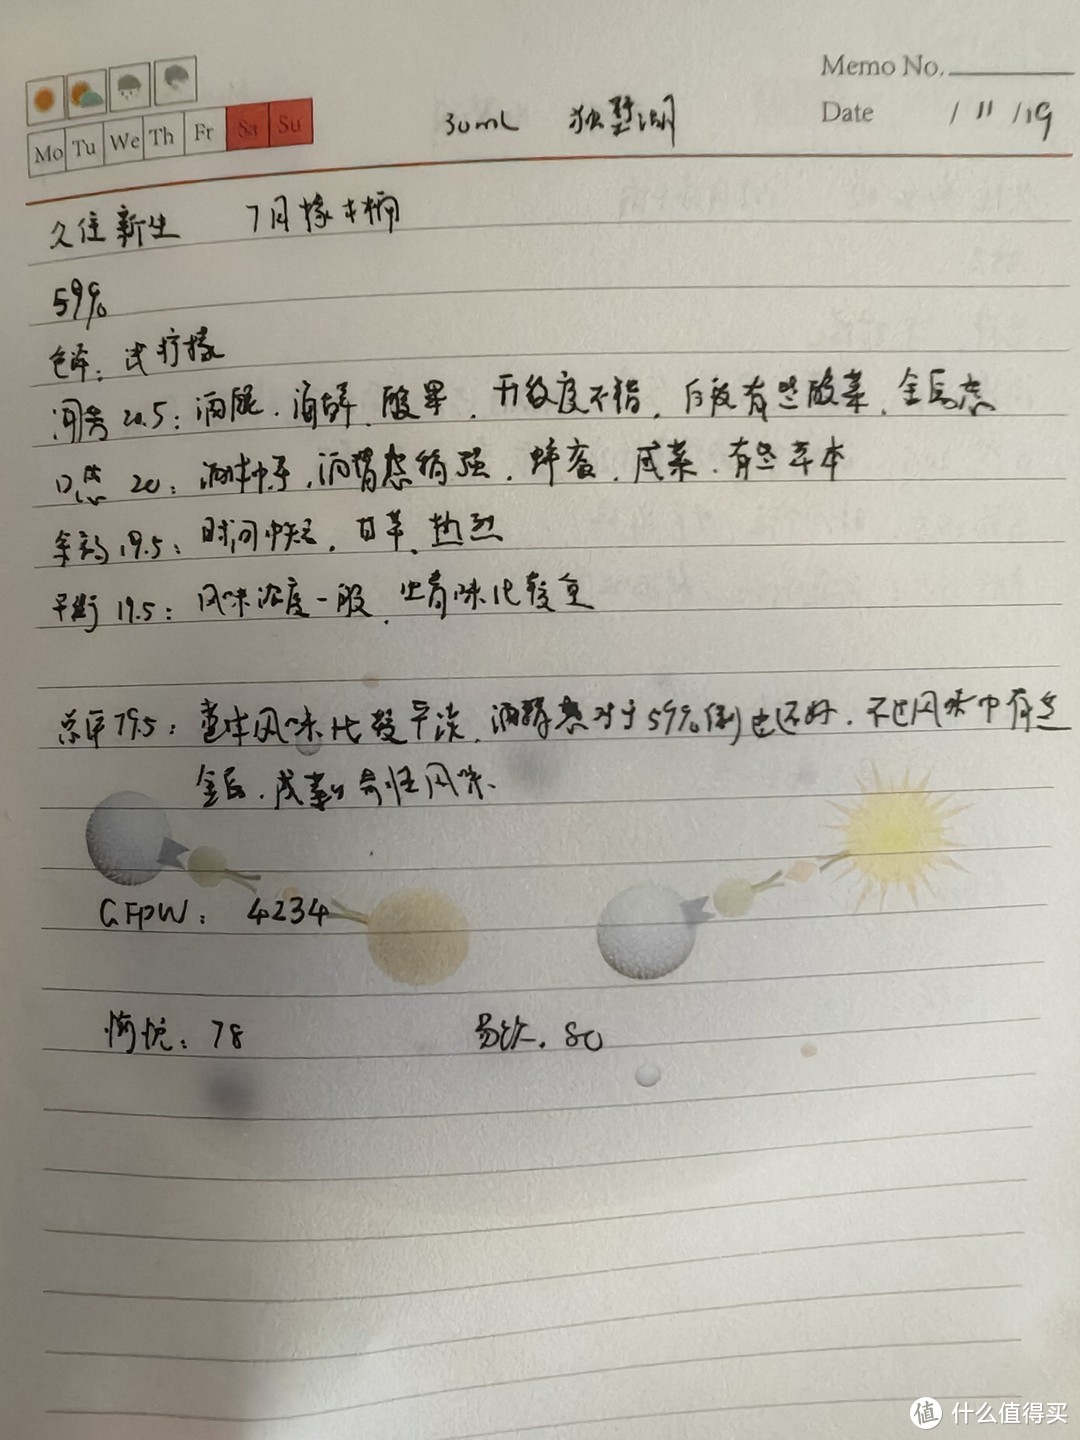 Memo No.
30mL 独墅湖 Date / 11 /19
Mo Tu We Th Fr Sa Su
久住新生 7月橡木桶
59%
色泽:
闻香 20.5: 酒醒、海鲜、酸果、开放度不错、后段有些酸菜、金属感
口感 20: 酒体中等、酒精感稍强、蜂蜜、咸菜、有些草本
余韵 19.5: 时间中短、甘草、热烈
平衡 19.5: 风味浓度一般、
总评 79.5: 整体风味比较平淡、酒精感对于59%倒也还好、不过风味中有些
金属、咸菜的奇怪风味、
CFPW: 4234
愉悦: 78 易饮: 80
值 什么值得买